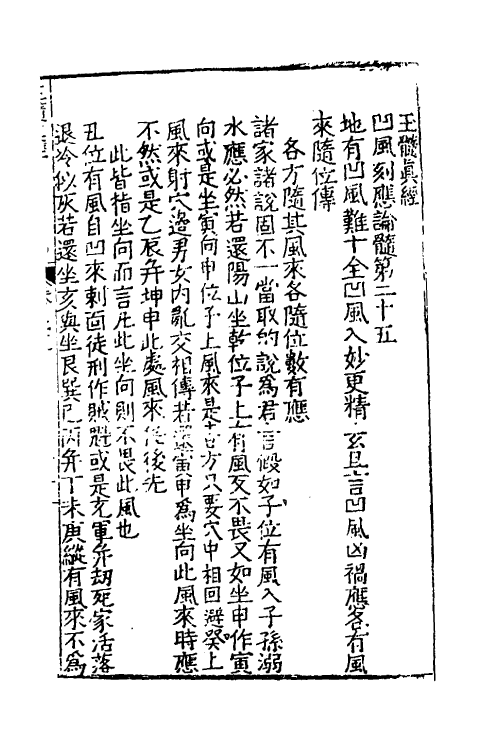 玉髓真經
凹風刻應論髓第二十五
地有凹風難十全凹風入妙更精玄且言凹風凶禍應客有風
來隨位傳
各方隨其風來各隨位數有應
諸家諸說固不一當取約說為君言假如子位有風入子孫溺
水應必然若還陽山坐乾位子上有風反不畏又如坐申作寅
向或是坐寅向申位子上風來是吉方只要穴中相回避癸上
風來射穴邊男女內亂交相傳若還寅申為坐向此風來時應
不然或是乙辰并坤申此處風來 後先
此皆指坐向而言凡此坐向則不畏此風也
丑位有風自凹來刺面徒刑作賊魁或是充軍并劫死家活落
退冷似灰若還坐亥與坐艮巽巳丙并丁未庚縱有風來不為